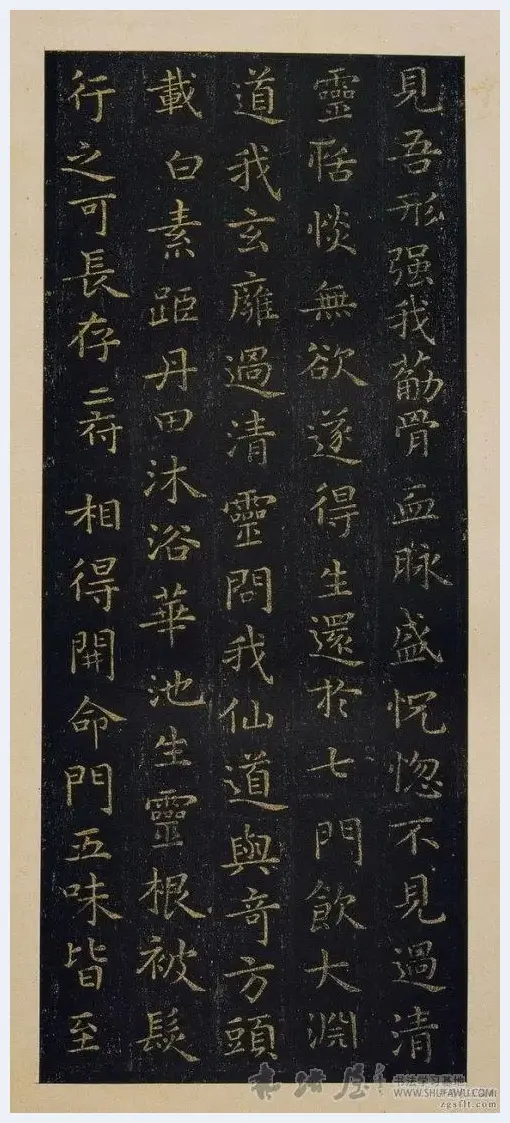 見吾形强我筋骨血脉盛怳惚不見過清
靈恬惔無欲遂得生還於七門飲大淵
道我玄廱過清靈問我仙道與奇方頭
載白素距丹田沐浴華池生靈根被髮
行之可長存二府相得開命門五味皆至
书法学习基地
WWW.SHUFAWU.COM
zgsflt.com